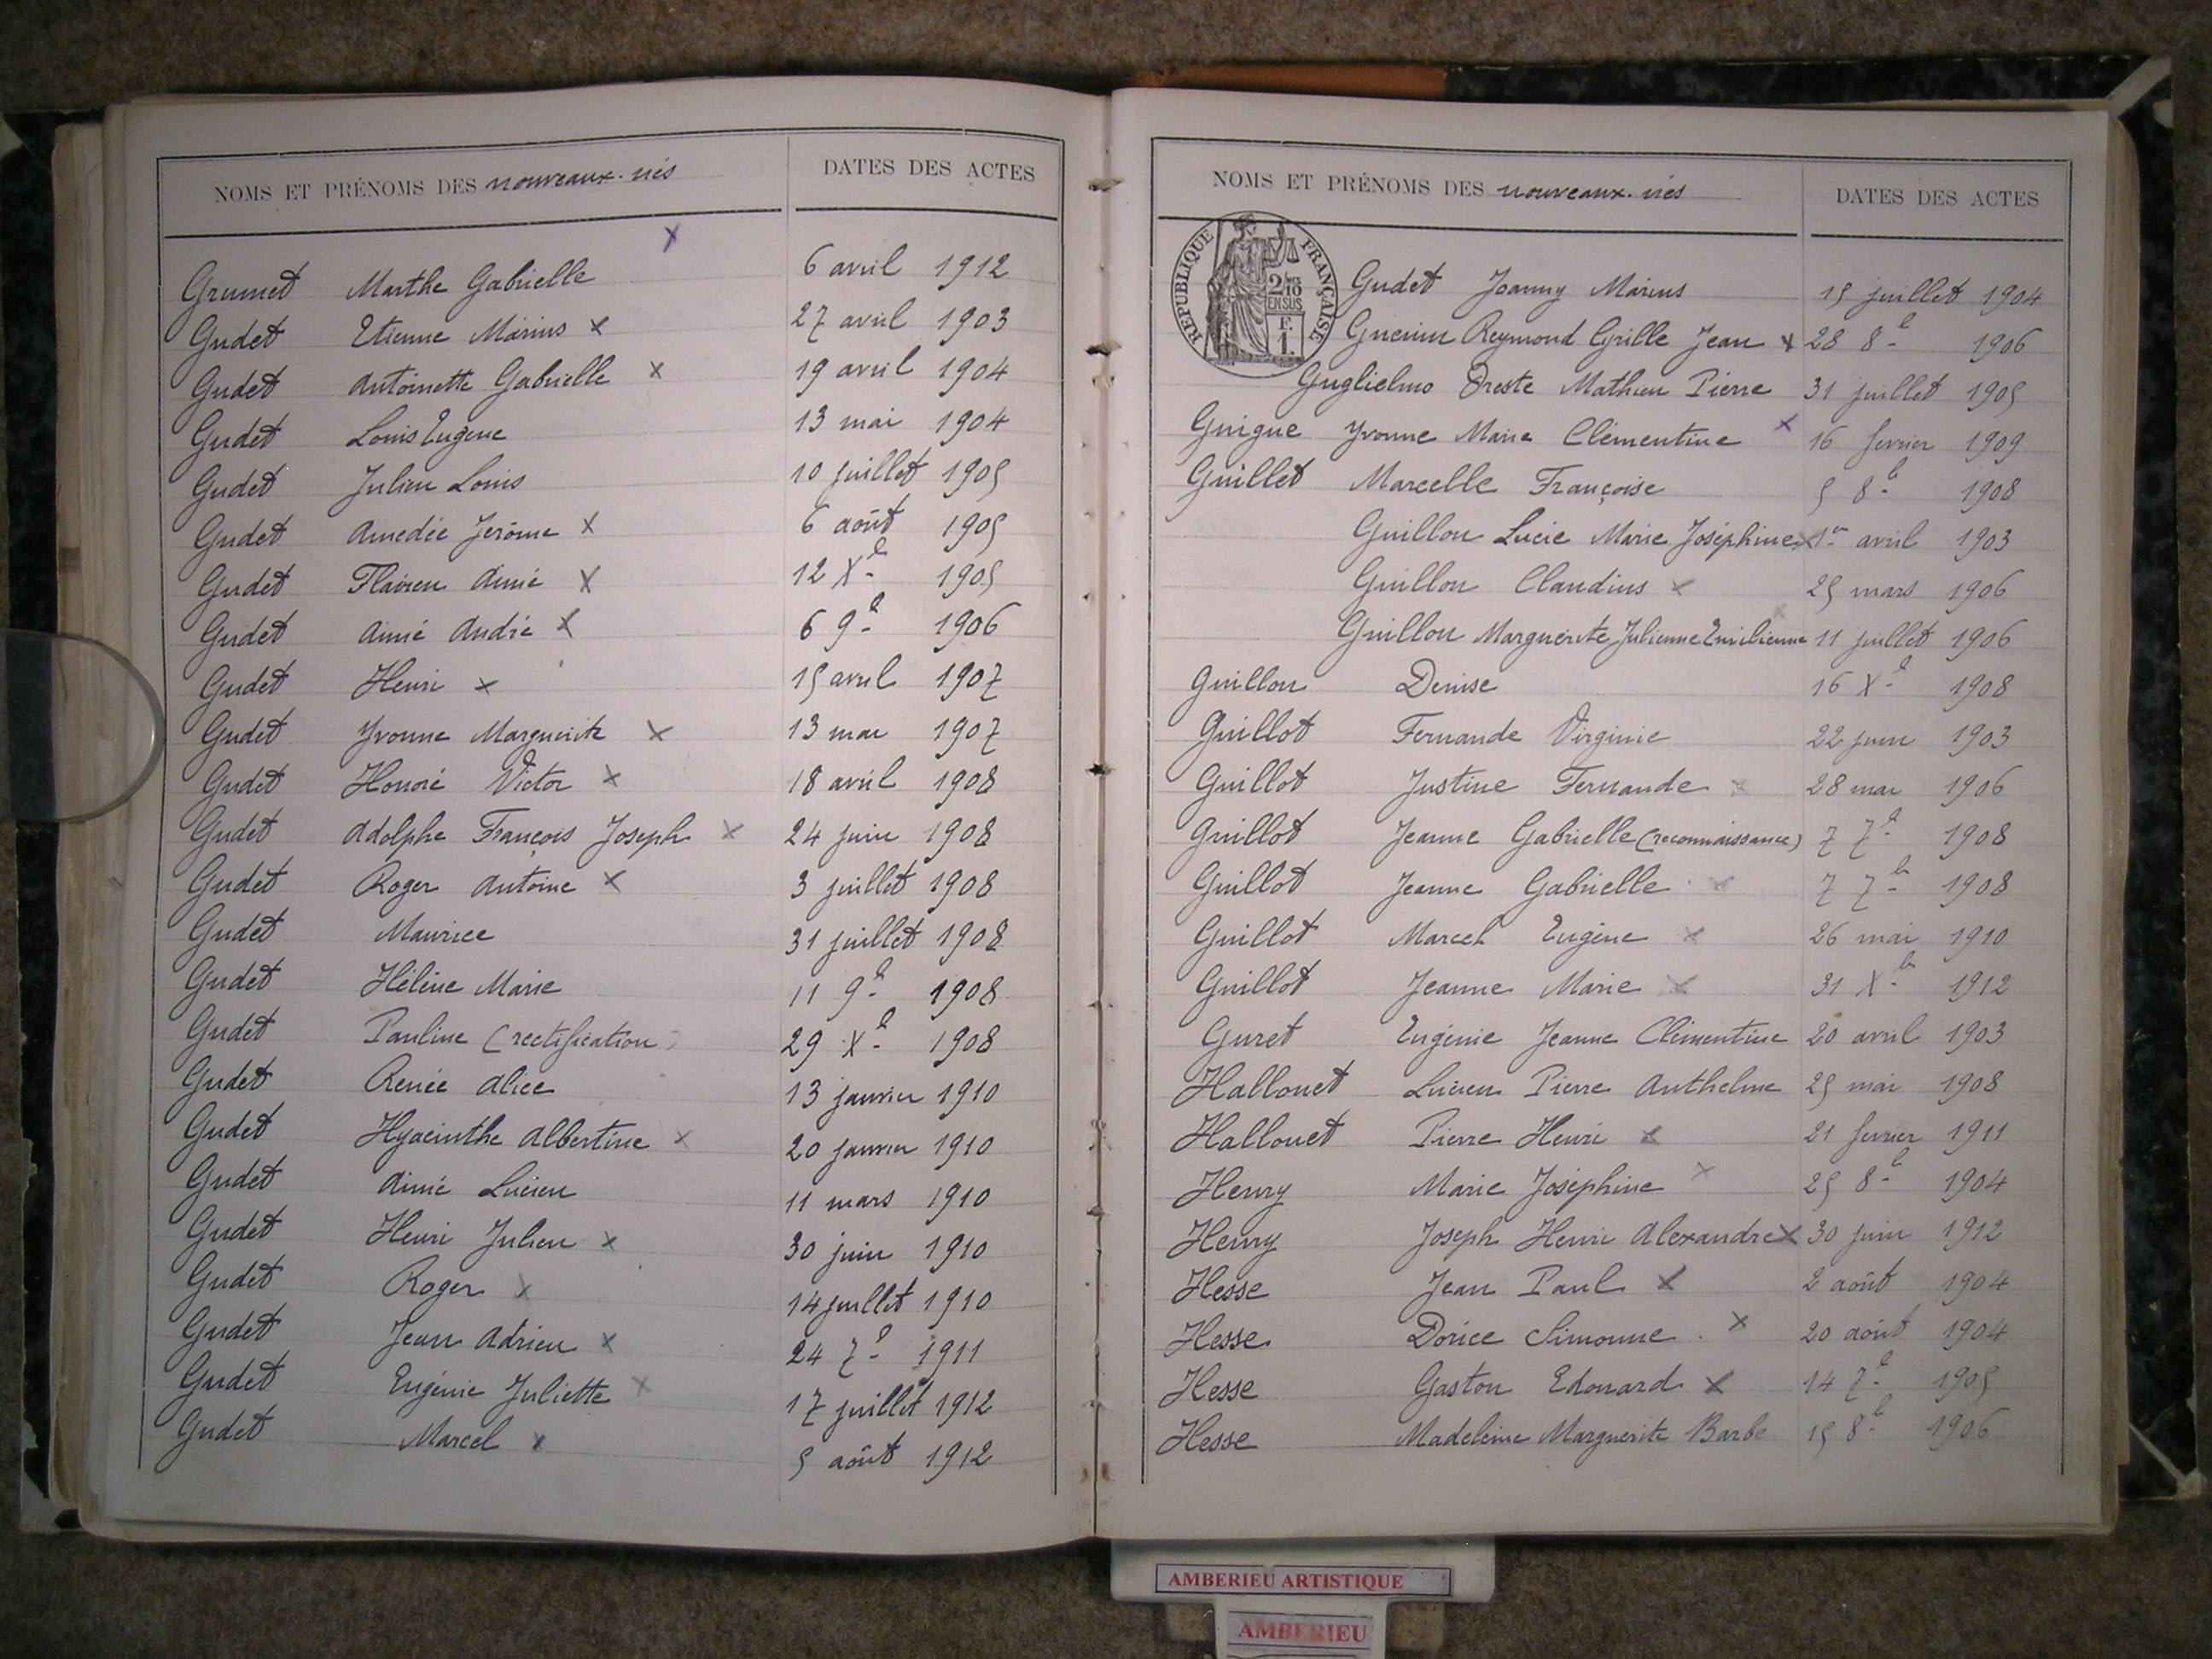 NOMS ET PRÉNOMS DES nouveaux-nés DATES DES ACTES
Grumet Marthe Gabrielle X 6 avril 1912
Gudet Etienne Marius X 27 avril 1903
Gudet Antoinette Gabrielle X 19 avril 1904
Gudet Louis Eugène 13 mai 1904
Gudet Julien Louis 10 juillet 1905
Gudet Amédée Jérôme X 6 août 1905
Gudet Flavien Aimé X 12 Xb 1905
Gudet Aimé André X 6 9b 1906
Gudet Henri X 15 avril 1907
Gudet Yvonne Marguerite X 13 mai 1907
Gudet Honoré Victor X 18 avril 1908
Gudet Adolphe François Joseph X 24 juin 1908
Gudet Roger Antoine X 3 juillet 1908
Gudet Maurice 31 juillet 1908
Gudet Hélène Marie 11 9b 1908
Gudet Pauline (rectification) 29 Xb 1908
Gudet Renée Alice 13 janvier 1910
Gudet Hyacinthe Albertine X 20 janvier 1910
Gudet Aimé Lucien 11 mars 1910
Gudet Henri Julien X 30 juin 1910
Gudet Roger X 14 juillet 1910
Gudet Jean Adrien X 24 7b 1911
Gudet Eugénie Juliette X 17 juillet 1912
Gudet Marcel X 5 août 1912
NOMS ET PRÉNOMS DES nouveaux-nés DATES DES ACTES
RÉPUBLIQUE FRANÇAISE
2/10
EN SUS
F.
1.
Gudet Joanny Marius 15 juillet 1904
Guenin Reymond Cyrille Jean X 28 8b 1906
Guglielmo Oreste Mathieu Pierre 31 juillet 1905
Guigue Yvonne Marie Clémentine X 16 fevrier 1909
Guillet Marcelle Françoise 5 8b 1908
Guillon Lucie Marie Joséphine X 1er avril 1903
Guillon Claudius X 25 mars 1906
Guillon Marguerite Julienne Emilienne X 11 juillet 1906
Guillon Denise 16 Xb 1908
Guillot Fernande Virginie 22 juin 1903
Guillot Justine Fernande X 28 mai 1906
Guillot Jeanne Gabrielle (reconnaissance) 7 7b 1908
Guillot Jeanne Gabrielle X 7 7b 1908
Guillot Marcel Eugène X 26 mai 1910
Guillot Jeanne Marie X 31 Xb 1912
Guret Eugénie Jeanne Clémentine 20 avril 1903
Hallouet Lucien Pierre Anthelme 25 mai 1908
Hallouet Pierre Henri X 21 fevrier 1911
Henry Marie Joséphine X 25 8b 1904
Henry Joseph Henri Alexandre X 30 juin 1912
Hesse Jean Paul X 2 août 1904
Hesse Dorice Simonne X 20 août 1904
Hesse Gaston Edouard X 14 7b 1905
Hesse Madeleine Marguerite Barbe 15 8b 1906
AMBERIEU ARTISTIQUE
AMBERIEU